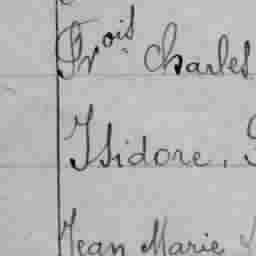 Frois Charles
Isidore.
Jean Marie